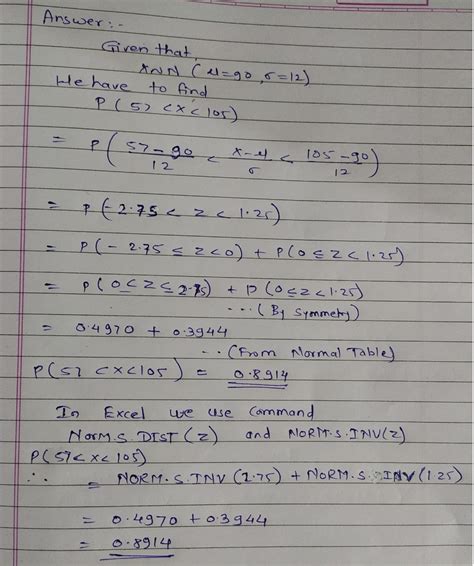 Answer :-
Given that,
X~N (μ=90, σ=12)
We have to find
P(57 < X < 105)
= P( (57-90)/12 < (X-μ)/σ < (105-90)/12 )
= P(-2.75 < Z < 1.25)
= P(-2.75 ≤ Z < 0) + P(0 ≤ Z < 1.25)
= P(0 ≤ Z ≤ 2.75) + P(0 ≤ Z < 1.25)
... (By Symmetry)
= 0.4970 + 0.3944
... (From Normal Table)
P(57 < X < 105) = 0.8914
In Excel we use Command
NORM.S.DIST(Z) and NORM.S.INV(Z)
P(57 < X < 105)
∴ = NORM.S.INV(2.75) + NORM.S.INV(1.25)
= 0.4970 + 0.3944
= 0.8914